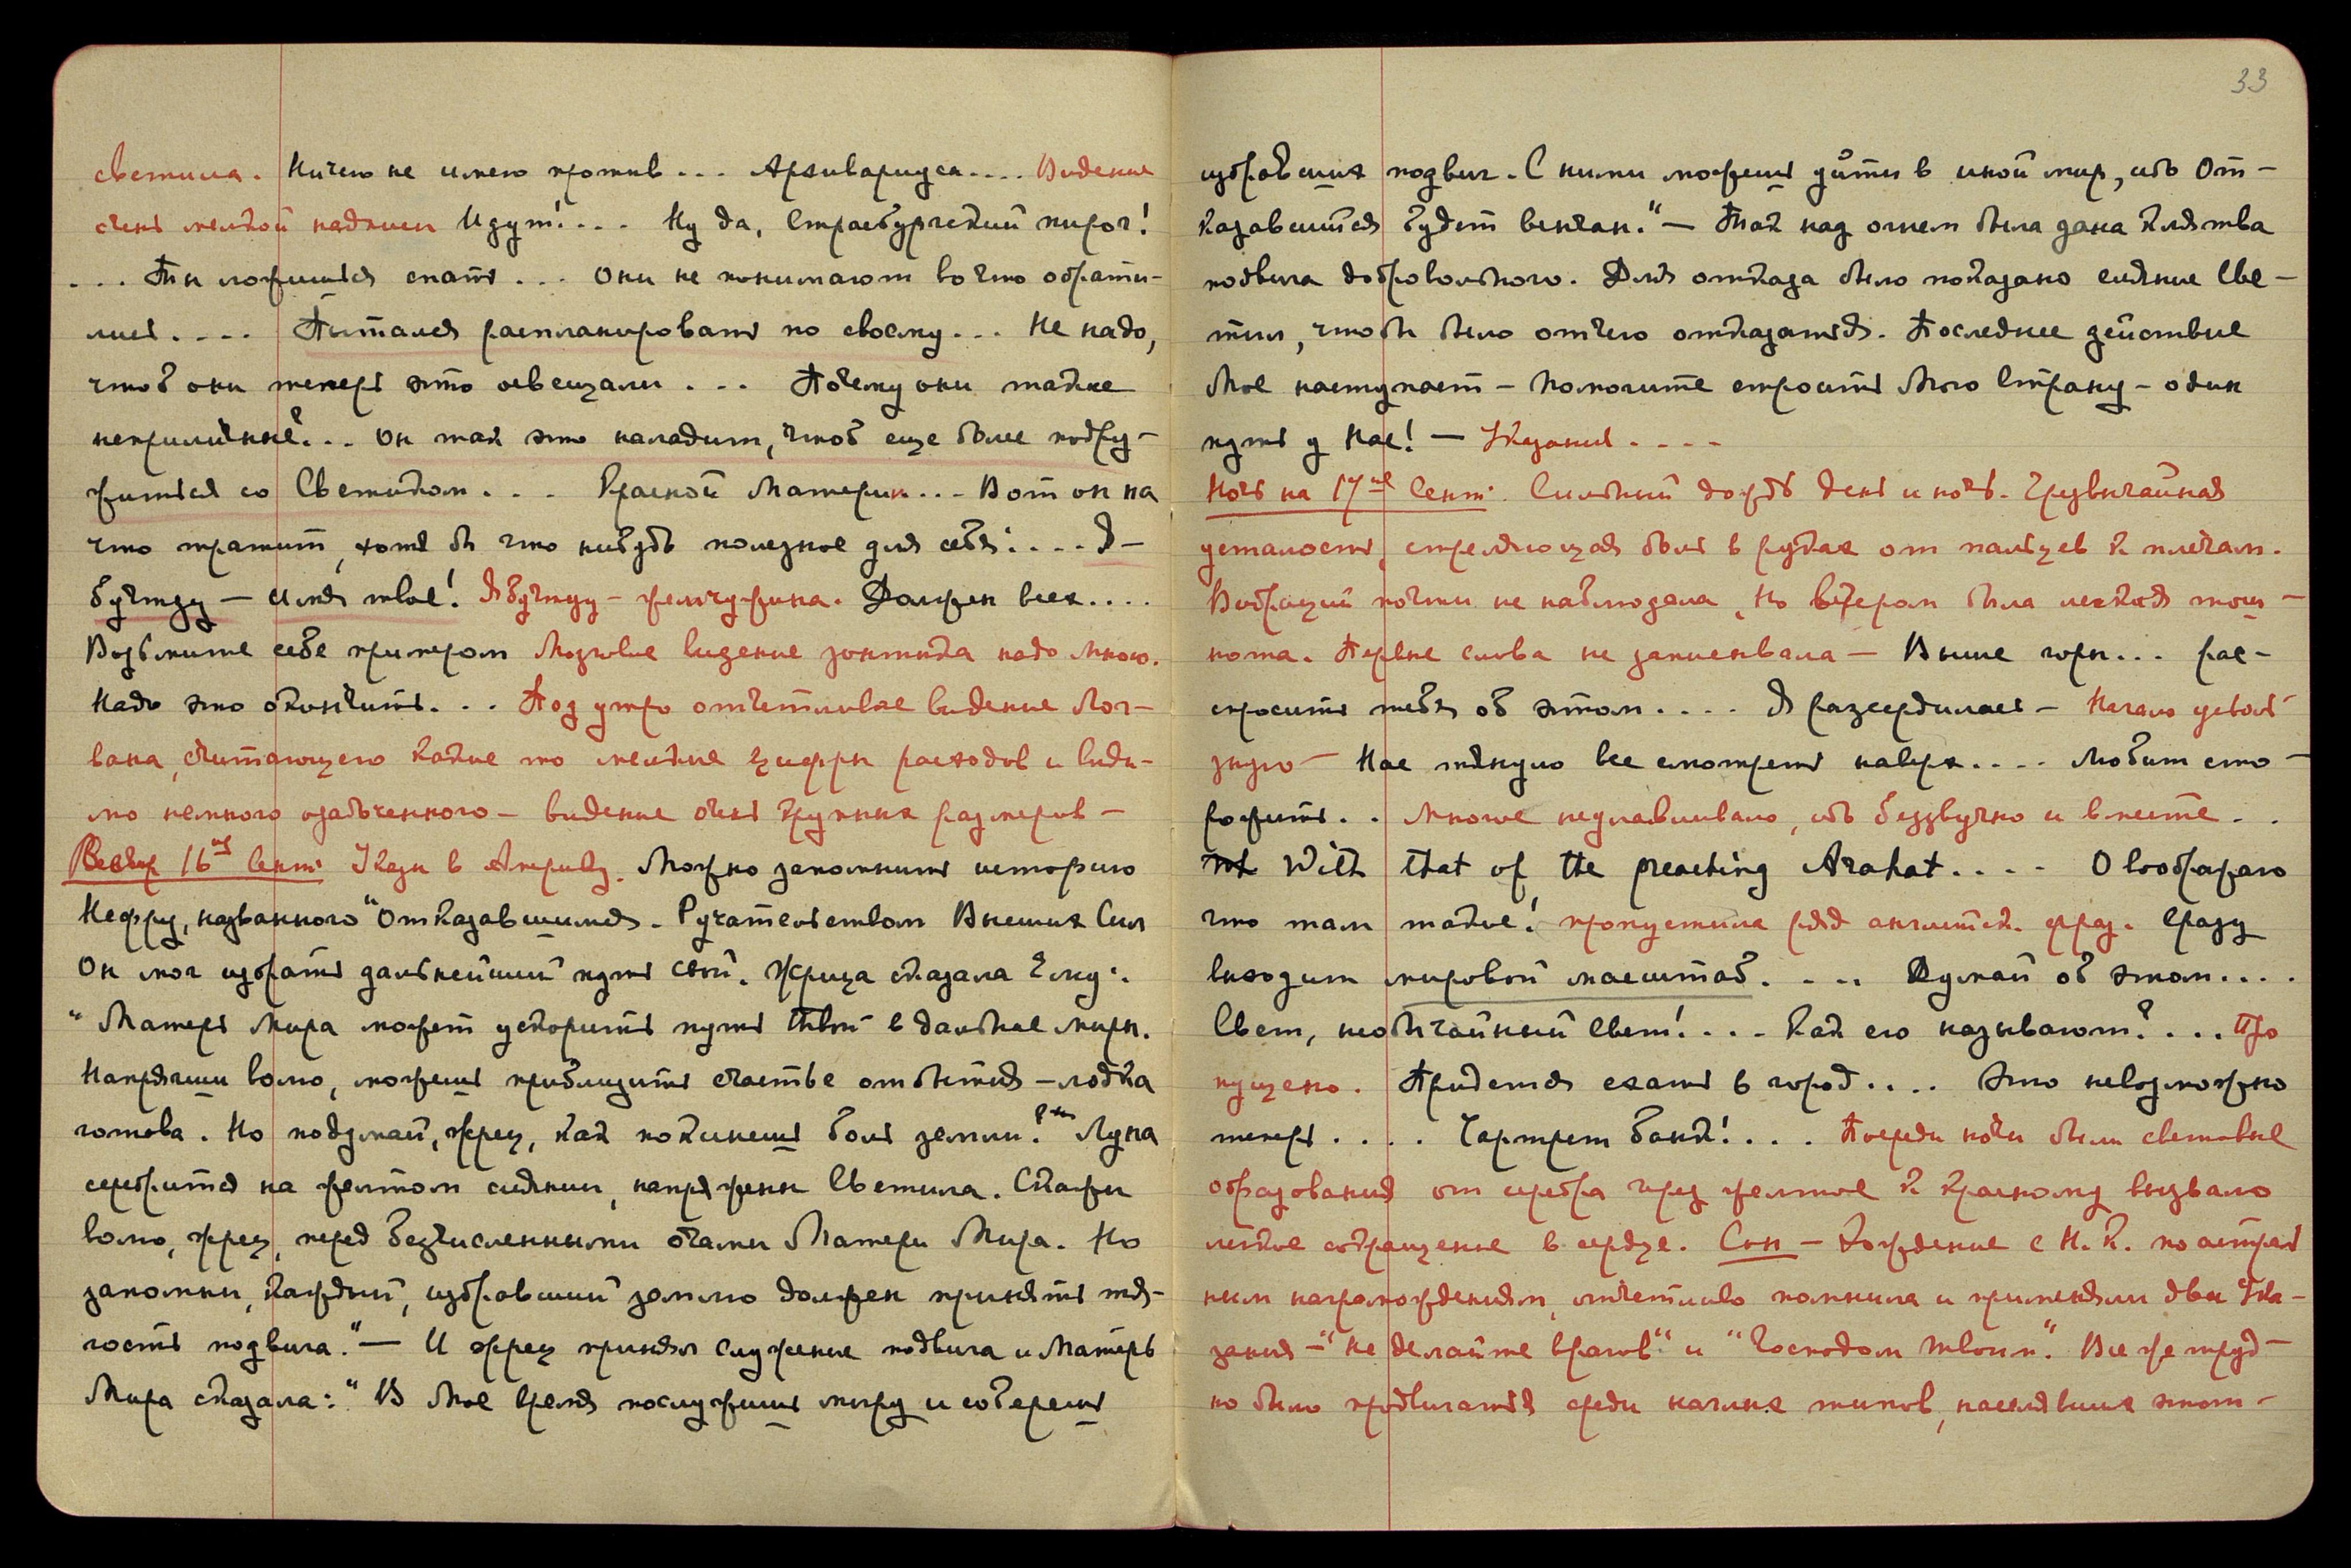 светила. Ничего не имею против... Архивариуса.... Видение
очень мелкой надписи Идут!... Ну да, Страсбургский пирог!
... Ты ложишься спать... Они не понимают во что обрати-
лись.... Пытался распланировать по своему... Не надо,
чтоб они теперь это освещали... Почему они такие
неприличные?... Он так это наладит, чтоб еще более подру-
житься со Светиком... Красной Материи... Вот он на
что тратит, хотя бы что нибудь полезное для себя:.... Я-
бучтзу — имя твое! Ябучтзу – жемчужина. Должен всех....
Возьмите себе примером Мозговое видение зонтика надо мною.
Надо это окончить... Под утро отчетливое видение Лог-
вана, считающего какие то мелкие цифры расходов и види-
мо немного озабоченного – видение очень крупных размеров –
Вечер 16ое Сент. Указы в Америку. Можно запомнить историю
Нефру, названного "Отказавшимся. Ручательством Высших Сил
Он мог избрать дальнейший путь свой. Жрица сказала Ему:
"Матерь Мира может ускорить путь твой в дальние миры.
Напрягши волю, можешь приблизить счастье отбытия – лодка
готова. Но подумай, жрец, как покинешь боль земли?" Луна
серебрится на желтом сиянии, напряжены Светила. Скажи
волю, жрец, перед безчисленными очами Матери Мира. Но
запомни, каждый, избравший землю должен принять тя-
гость подвига." — И жрец принял служение подвига и Матерь
Мира сказала: "В Мое время послужишь миру и соберешь
33
избравших подвиг. С ними можешь уйти в иной мир, ибо От-
казавшийся будет венчан." — Так над огнем была дана клятва
подвига добровольного. Для отказа было показано сияние Све-
тил, чтобы было от чего отказаться. Последнее действие
Мое наступает – помогите строить Мою Страну – один
путь у Нас! — Указания....
Ночь на 17ое Сент. Сильный дождь день и ночь. Чрезвычайная
усталость, стреляющая боль в руках от пальцев к плечам.
Вибраций почти не наблюдала, но вечером была легкая тош-
нота. Первые слова не записывала — Выше горы... рас-
спросить тебя об этом.... Я разсердилась – Начало усколь-
знуло – Нас тянуло все смотреть наверх.... Любит сто-
рожить.. Многое неуловимо, ибо беззвучно и вместе..
With that of the preaching Arahat.... О воображаю
что там такое! пропустила ряд английск. фраз. Сразу
входит мировой масштаб.... Думай об этом....
Свет, необычайный свет!.... Как его называют?... Про
пущено. Придется ехать в город.... Это невозможно
теперь.... Чартрет банк!.... Посреди ночи были световые
образования от серебра через желтое к красному вызвало
легкое сокращение в сердце. Сон – Хождение с Н. К. по астраль
ным нагромождениям, отчетливо помнила и применяли два Ука-
зания – "не делайте врагов" и "Господом твоим". Все же труд-
но было продвигаться среди наглых типов, населявших этот –